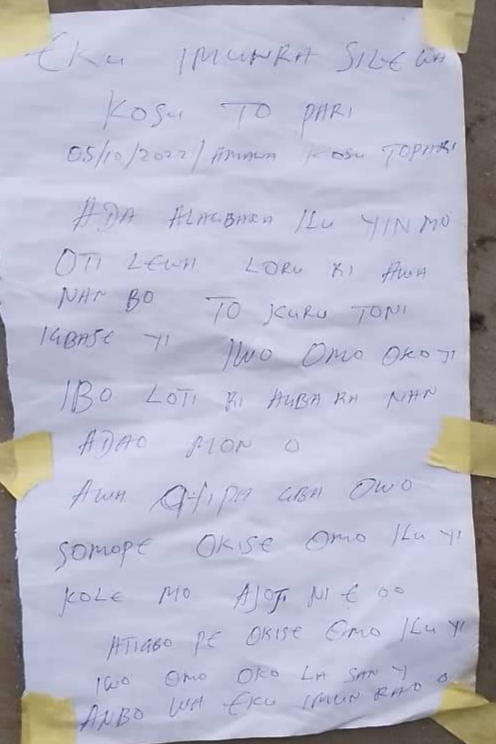 EKU IMUNRA SILE WA
KOSU TO PARI
05/10/2022/ AMAWA KOSU TOPARI
ADA ALAGBARA ILU YIN MO
OTI LEWA LORU KI AWA
NAN BO TO KURU TONI
IGBASE YI IWO OMO OKO JI
IBO LOTI RI AGBARA NAN
ADAO MON O
AWA GBA OWO
SOMOPE OKISE OMO ILU YI
KOLE MO AJOJI NI E OO
ATIGBO PE OKISE OMO ILU YI
IWO OMO OKO LA SAN YI
ANBO WA EKU IMUN RAO O